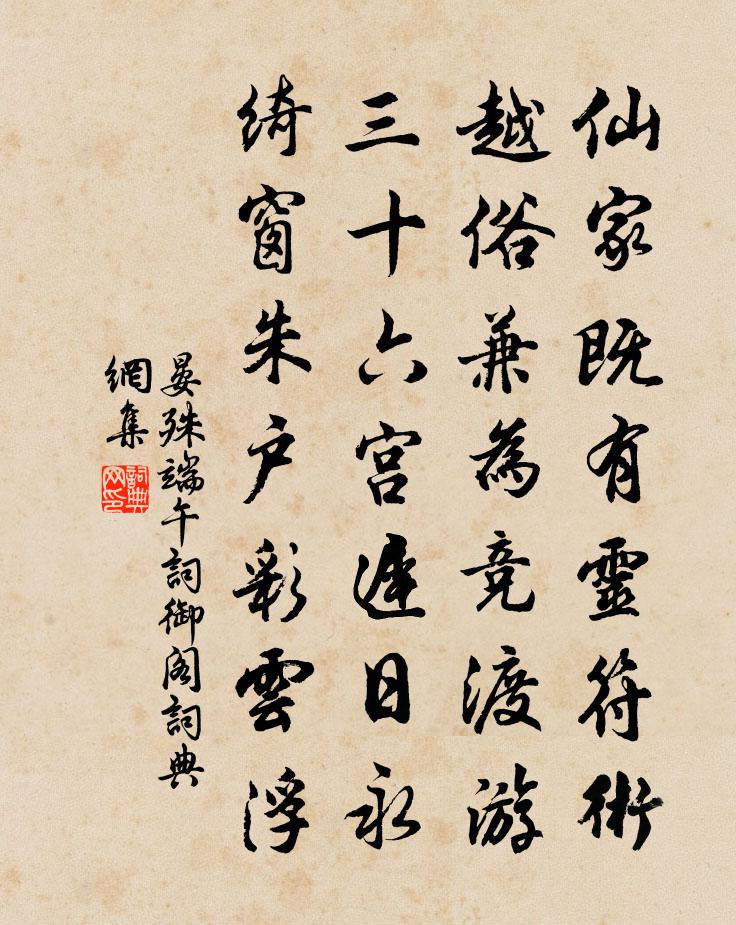 仙家既有靈符術
越俗兼為競渡游
三十六宮遲日永
綺窗朱戶彩雲浮
晏殊端午詞御閣詞典
網集
詞典
网印